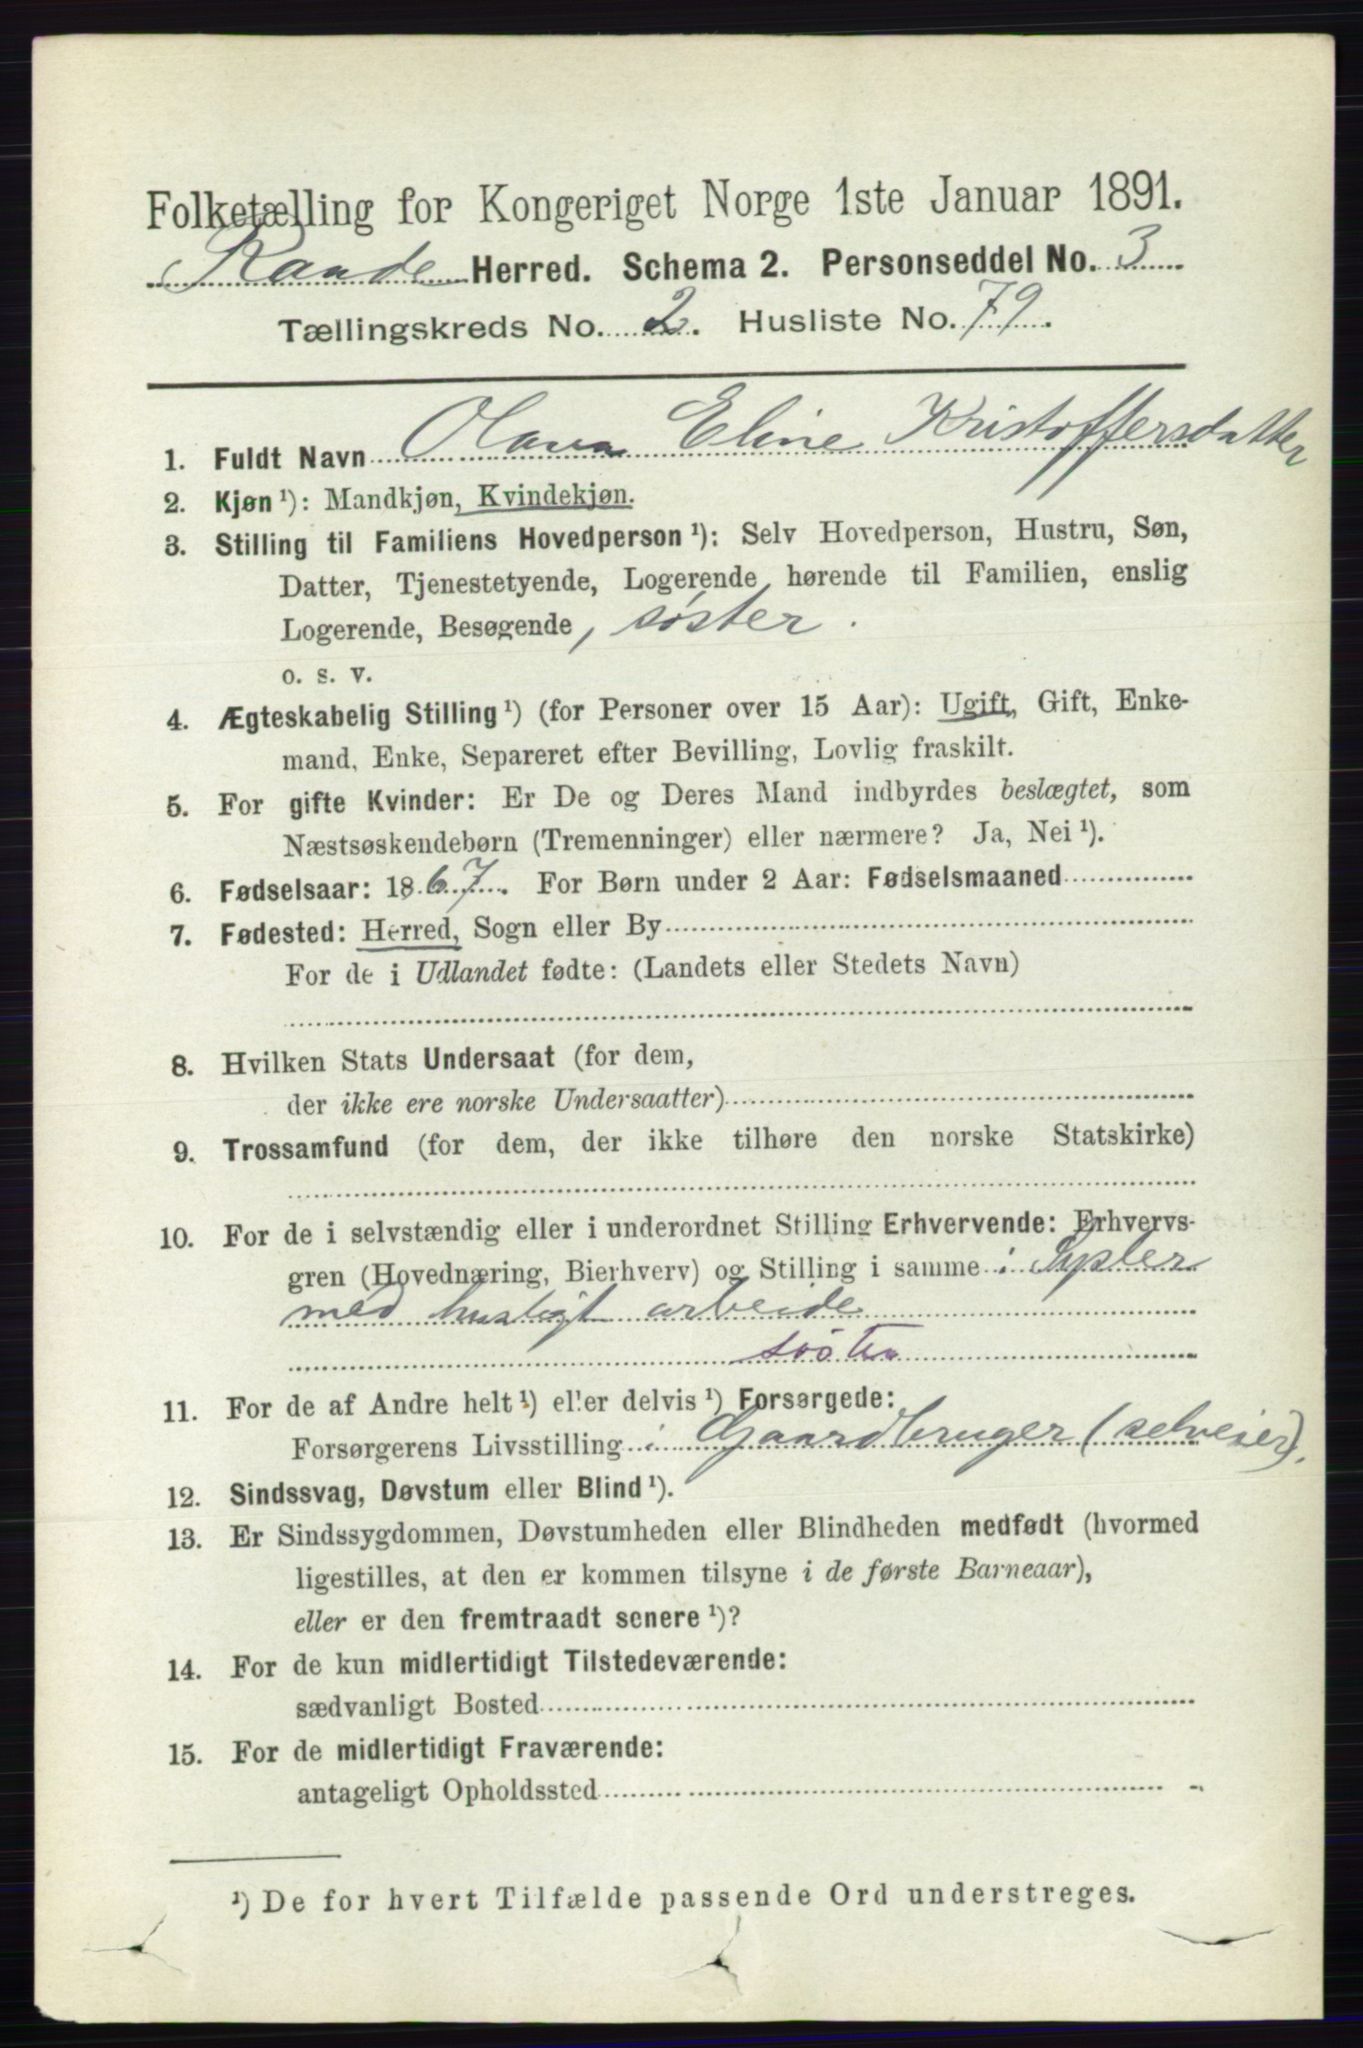 Folketælling for Kongeriget Norge 1ste Januar 1891.
Raade Herred. Schema 2. Personseddel No. 3
Tællingskreds No. 2. Husliste No. 79.
1. Fuldt Navn Olava Eline Kristoffersdatter
2. Kjøn ¹): Mandkjøn, Kvindekjøn.
3. Stilling til Familiens Hovedperson ¹): Selv Hovedperson, Hustru, Søn,
Datter, Tjenestetyende, Logerende hørende til Familien, enslig
Logerende, Besøgende, søster.
o. s. v.
4. Ægteskabelig Stilling ¹) (for Personer over 15 Aar): Ugift, Gift, Enke-
mand, Enke, Separeret efter Bevilling, Lovlig fraskilt.
5. For gifte Kvinder: Er De og Deres Mand indbyrdes beslægtet, som
Næstsøskendebørn (Tremenninger) eller nærmere? Ja, Nei ¹).
6. Fødselsaar: 1867. For Børn under 2 Aar: Fødselsmaaned
7. Fødested: Herred, Sogn eller By
For de i Udlandet fødte: (Landets eller Stedets Navn)
8. Hvilken Stats Undersaat (for dem,
der ikke ere norske Undersaatter)
9. Trossamfund (for dem, der ikke tilhøre den norske Statskirke)
10. For de i selvstændig eller i underordnet Stilling Erhvervende: Erhvervs-
gren (Hovednæring, Bierhverv) og Stilling i samme : Sysler
med husligt arbeide
söster
11. For de af Andre helt ¹) eller delvis ¹) Forsørgede:
Forsørgerens Livsstilling : Gaardbruger (selveier).
12. Sindssvag, Døvstum eller Blind ¹).
13. Er Sindssygdommen, Døvstumheden eller Blindheden medfødt (hvormed
ligestilles, at den er kommen tilsyne i de første Barneaar),
eller er den fremtraadt senere ¹)?
14. For de kun midlertidigt Tilstedeværende:
sædvanligt Bosted
15. For de midlertidigt Fraværende:
antageligt Opholdssted
¹) De for hvert Tilfælde passende Ord understreges.